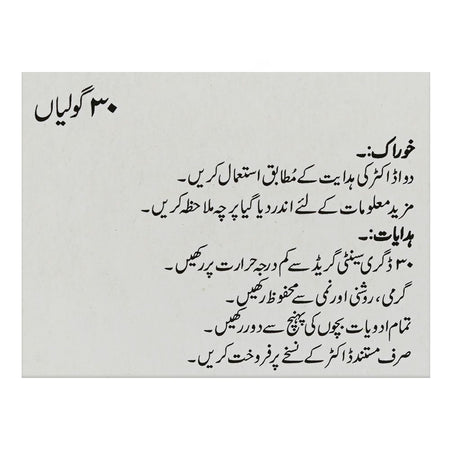 ۳۰ گولیاں
خوراک:۔
دوا ڈاکٹر کی ہدایت کے مُطابق استعمال کریں۔
مزید معلومات کے لئے اندر دیا گیا پرچہ ملاحظہ کریں۔
ہدایات:۔
۳۰ ڈگری سینٹی گریڈ سے کم درجہ حرارت پر رکھیں۔
گرمی، روشنی اور نمی سے محفوظ رکھیں۔
تمام ادویات بچوں کی پہنچ سے دور رکھیں۔
صرف مستند ڈاکٹر کے نسخے پر فروخت کریں۔